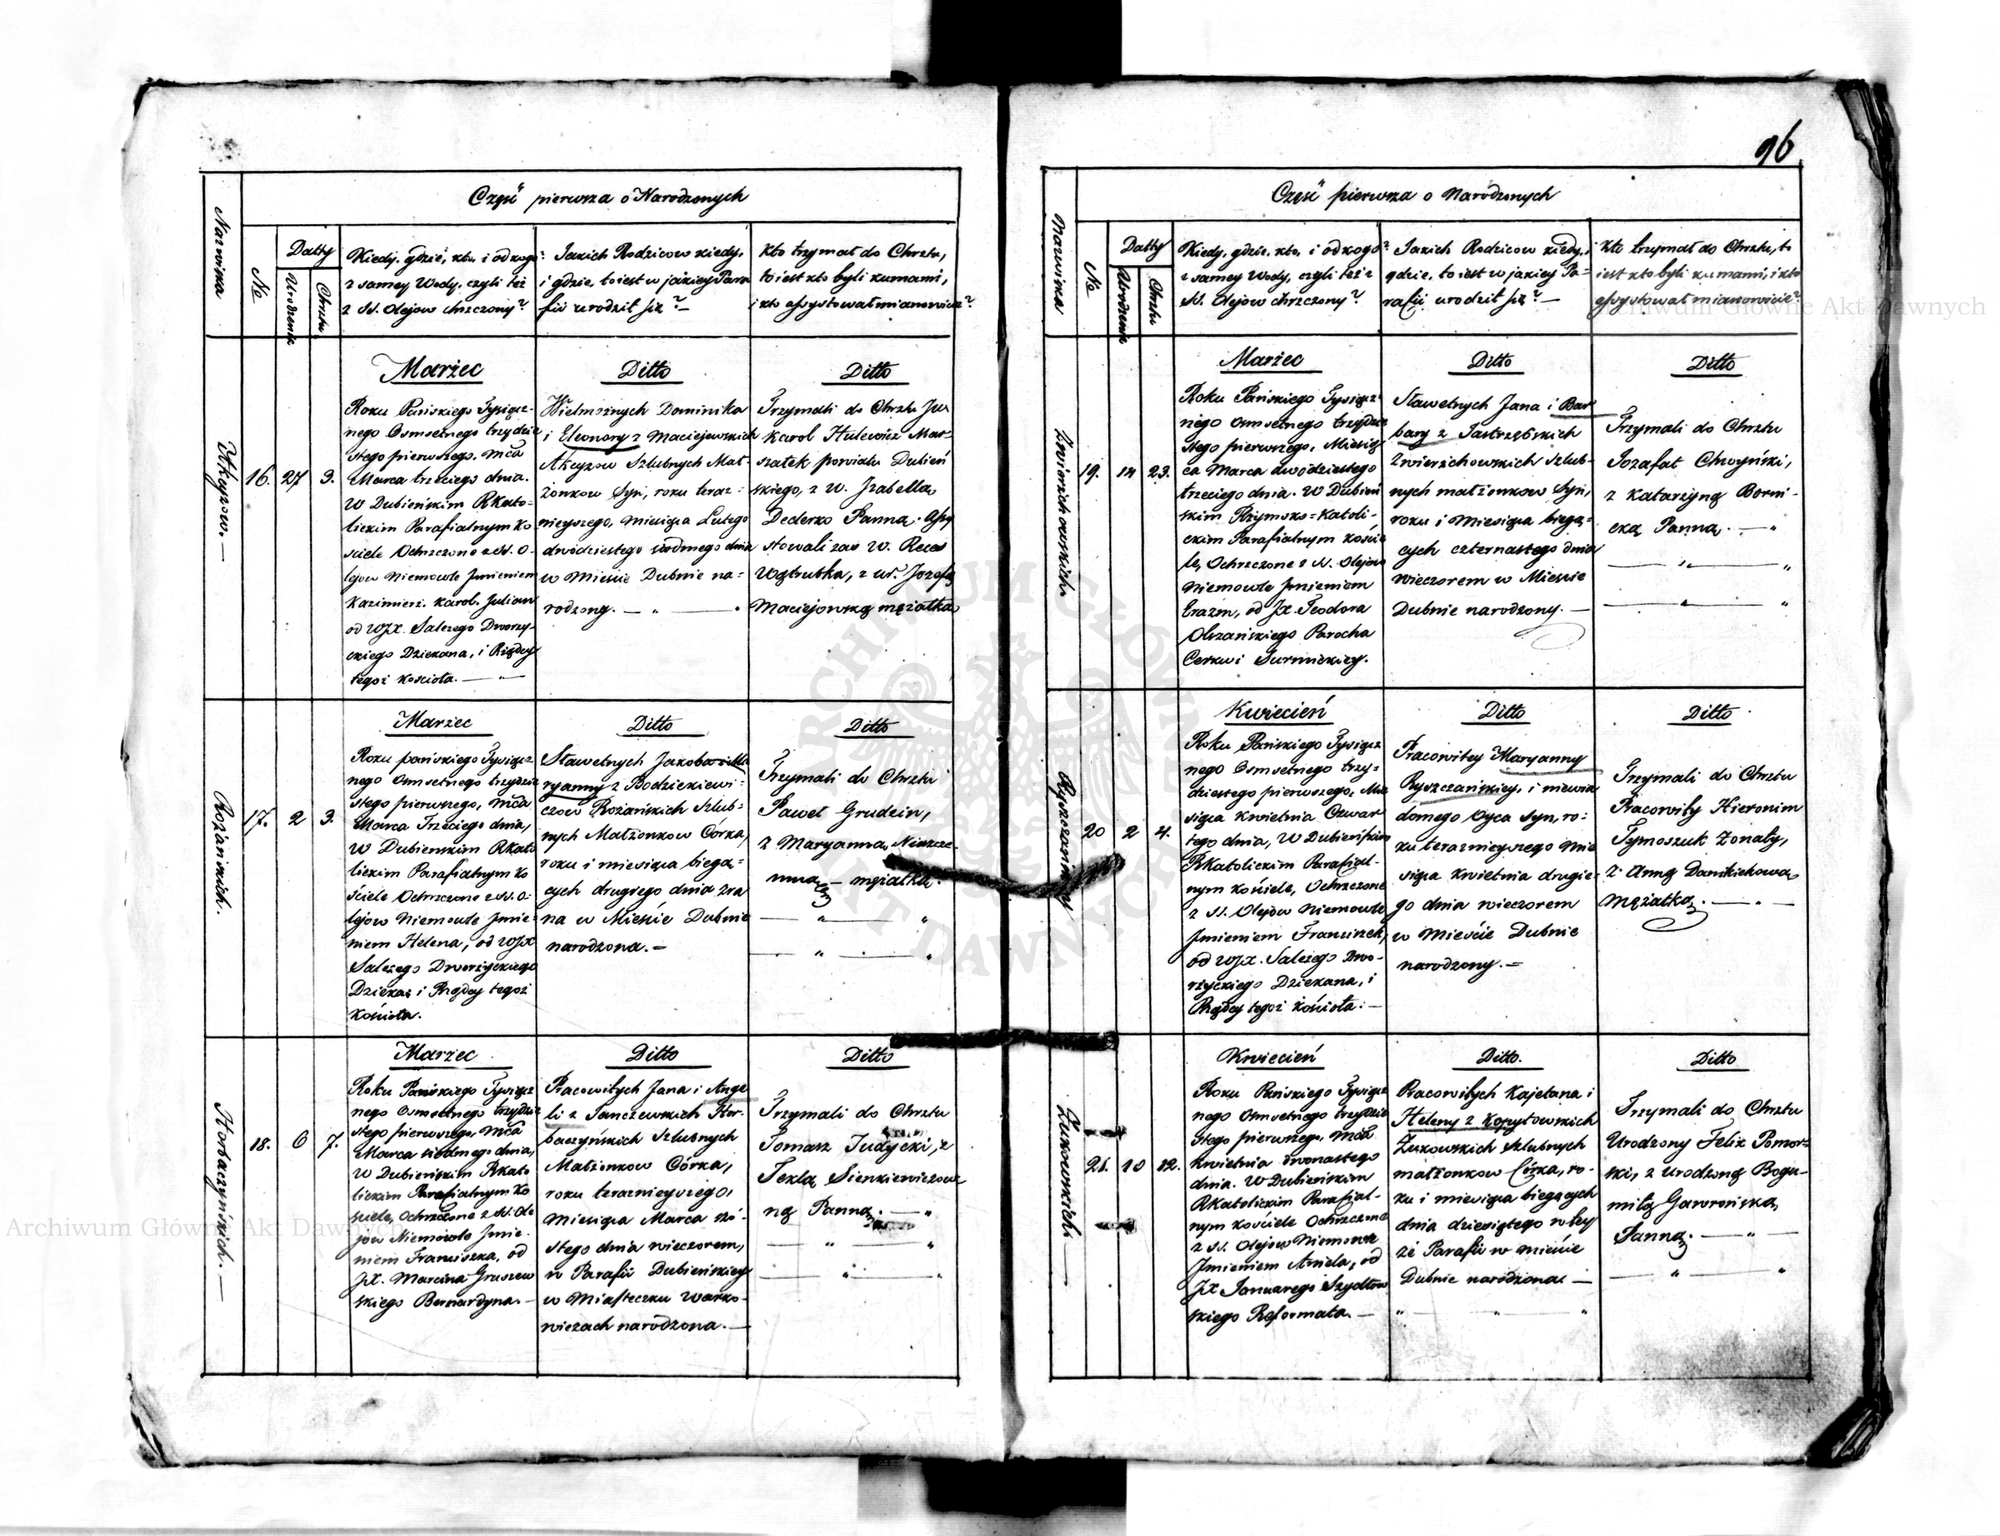 96
Część pierwsza o Narodzonych
Nazwiska
№
Datty
Urodzenia
Chrztu
Kiedy, gdzie, kto, i od kogo?
z samey Wody, czyli też
z SS. Olejow chrzczony?
Jakich Rodzicow kiedy,
i gdzie, to iest w jakiey Para
fii urodził się? —
Kto trzymał do Chrztu,
to iest kto byli kumami,
i kto assystował mianowicie?
16.
27
3.
Marzec
Roku Pańskiego Tysiącz-
nego Osmsetnego trzydzie
stego pierwszego, Mca
Marca trzeciego dnia.
W Dubieńskim RKato-
lickim Parafialnym Ko
sciele Ochrzczono z SS. O-
lejow Niemowle Jmieniem
Kazimierz. Karol. Julian
od WJX. Salezego Dworzy-
ckiego Dziekana, i Rządcy
tegoż kościoła. —
Ditto
Wielmożnych Dominika
i Eleonory z Maciejewskich
Szlubnych Mał-
żonkow Syn, roku teraz-
nieyszego, miesiąca Lutego
dwódziestego siodmego dnia
w Mieście Dubnie na-
rodzony. —
Ditto
Trzymali do Chrztu JW
Karol Hulewicz Mar-
szałek powiatu Dubień
skiego, z W. Jzabellą
Dederko Panną. Assy
stowali zaś W.
Wątrubka, z W. Jozefą
Maciejowską mężatką
Rożańskich.
17.
2
3.
Marzec
Roku pańskiego Tysiącz
nego Osmsetnego trzydzie
stego pierwszego, Mca
Marca Trzeciego dnia,
W Dubienskim RKato
lickim Parafialnym Ko
ściele Ochrzczono z SS. O-
lejow Niemowle Jmie-
niem Helena, od WJX
Salezego Dworzyckiego
Dziekana i Rządcy tegoż
kościoła.
Ditto
Sławetnych Jakoba i Ma
ryanny z Bodziekiewi-
czow Rożańskich Szlub-
nych Małżonkow Córka,
roku i miesiąca biegą-
cych drugiego dnia zra
na w Mieście Dubnie
narodzona. —
Ditto
Trzymali do Chrztu
Paweł Grudzin,
z Maryanną
mężatką.
Horbaczyńskich. —
18.
6
7.
Marzec
Roku Pańskiego Tysiącz
nego Osmsetnego trzydzie
stego pierwszego, Mca
Marca siodmego dnia,
W Dubieńskim RKato
lickim Parafialnym Ko
sciele, Ochrzczono z SS. Ole
jow Niemowle Jmie-
niem Franciszka, od
JX. Marcina Gruszew
skiego Bernardyna. —
Ditto
Pracowitych Jana i Ange
li z Janczewskich Hor-
baczyńskich Szlubnych
Małżonkow Córka,
roku teraznieyszego,
miesiąca Marca szó-
stego dnia wieczorem,
w Parafii Dubieńskiey
w Miasteczku Warko-
wiczach narodzona. —
Ditto
Trzymali do Chrztu
Tomasz Judycki, z
Teklą Sienkiewiczow
ną Panną. —
Część pierwsza o Narodzonych
Nazwiska
№
Datty
Urodzenia
Chrztu
Kiedy, gdzie, kto, i od kogo?
z samey Wody, czyli też z
SS. Olejow chrzczony?
Jakich Rodzicow kiedy, i
gdzie, to iest w jakiey Pa-
rafii urodził się? —
Kto trzymał do Chrztu, to
iest kto byli kumami, i kto
assystował mianowicie?
Zwierzchowskich
19.
14
23.
Marzec
Roku Pańskiego Tysiącz
nego Osmsetnego trzydzie
stego pierwszego, Miesią
ca Marca dwódziestego
trzeciego dnia. W Dubień
skim Rzymsko-Katoli-
ckim Parafialnym kościo
le, Ochrzczone z SS. Olejow
Niemowle Jmieniem
Erazm, od JX. Teodora
Olszańskiego Parocha
Cerkwi Surmickiey.
Ditto
Sławetnych Jana i Bar
bary z Jastrzębskich
Zwierzchowskich Szlub-
nych małżonkow Syn,
roku i Miesiąca biegą-
cych czternastego dnia
wieczorem w Mieście
Dubnie narodzony. —
Ditto
Trzymali do Chrztu
Jozafat Chwyński,
z Katarzyną
Panną. —
20
2
4.
Kwiecień
Roku Pańskiego Tysiącz
nego Osmsetnego trzy-
dziestego pierwszego, Mie
siąca Kwietnia Czwar
tego dnia, W Dubieńskim
RKatolickim Parafial-
nym kościele, Ochrzczone
z SS. Olejow Niemowle
Jmieniem Franciszek,
od WJX. Salezego Dwo-
rzyckiego Dziekana, i
Rządcy tegoż kościoła. —
Ditto
Pracowitey Maryanny
Ryszczańskiey, i niewia
domego Oyca Syn, ro-
ku teraznieyszego Mie
siąca Kwietnia drugie-
go dnia wieczorem
w Mieście Dubnie
narodzony. —
Ditto
Trzymali do Chrztu
Pracowity Hieronim
Tymoszuk Żonaty,
z Anną Danikichową
mężatką. —
Żukowskich —
21.
10
12.
Kwiecień
Roku Pańskiego Tysiącz
nego Osmsetnego trzydzie
stego pierwszego, Mca
Kwietnia dwonastego
dnia. W Dubieńskim
RKatolickim Parafial-
nym kościele Ochrzczone
z SS. Olejow Niemowle
Jmieniem Aniela, od
JX Januarego Szydłow
skiego Reformata. —
Ditto.
Pracowitych Kajetana i
Heleny z Kopytowskich
Żukowskich szlubnych
małżonkow Córka, ro-
ku i miesiąca biegących
dnia dziesiątego w tey
że Parafii w mieście
Dubnie narodzona —
Ditto
Trzymali do Chrztu
Urodzony Felix Pomor-
ski, z Urodzoną Bogu-
miłą Gawrońską
Panną. —
Archiwum Główne Akt Dawnych
Archiwum Główne Akt Dawnych
ARCHIWUM GŁÓWNE AKT DAWNYCH